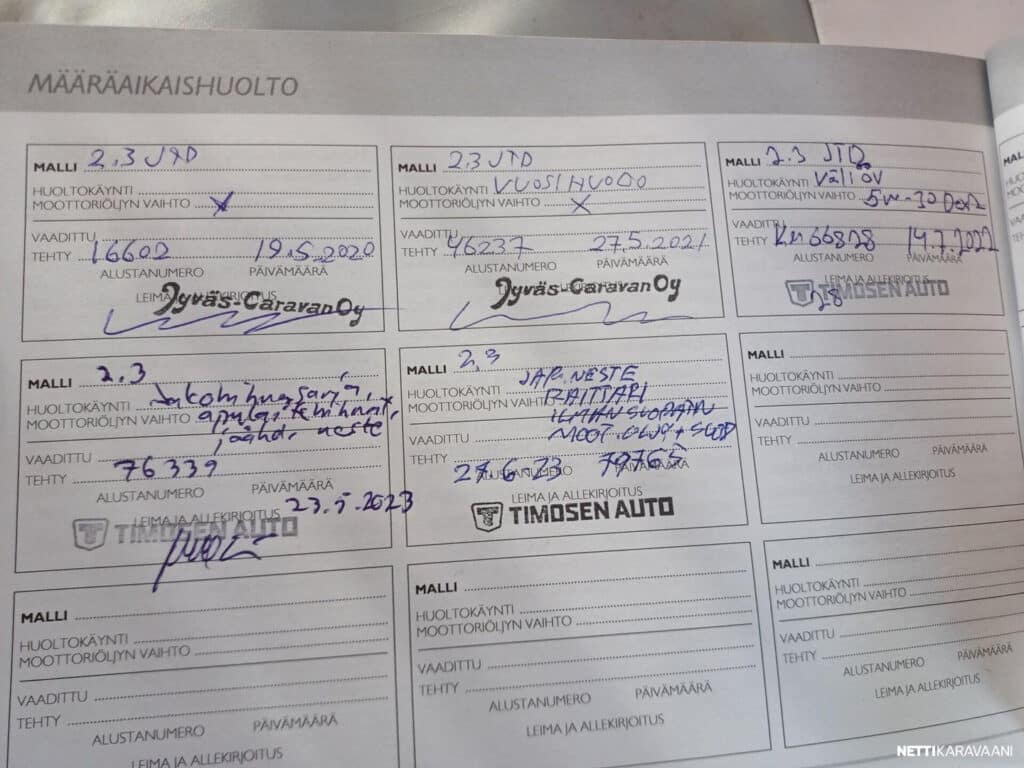 MÄÄRÄAIKAISHUOLTO
MALLI 2.3 JTD
HUOLTOKÄYNTI
MOOTTORIÖLJYN VAIHTO X
VAADITTU
TEHTY 16602 19.5.2020
ALUSTANUMERO PÄIVÄMÄÄRÄ
LEIMA JA ALLEKIRJOITUS
Jyväs-Caravan Oy
MALLI 2.3 JTD
HUOLTOKÄYNTI VUOSIHUOLTO
MOOTTORIÖLJYN VAIHTO X
VAADITTU
TEHTY 46237 27.5.2021
ALUSTANUMERO PÄIVÄMÄÄRÄ
Jyväs-Caravan Oy
MALLI 2.3 JTD
HUOLTOKÄYNTI väliöv
MOOTTORIÖLJYN VAIHTO 5w-30
VAADITTU
TEHTY Km 66828 14.7.2022
ALUSTANUMERO PÄIVÄMÄÄRÄ
LEIMA JA ALLEKIRJOITUS
TIMOSEN AUTO
MALLI 2.3
HUOLTOKÄYNTI Jakohihnasarja,
MOOTTORIÖLJYN VAIHTO apulaitehihnat,
jäähd. neste
VAADITTU
TEHTY 76339
ALUSTANUMERO PÄIVÄMÄÄRÄ
LEIMA JA ALLEKIRJOITUS 23.5.2023
TIMOSEN AUTO
MALLI 2,3
HUOLTOKÄYNTI JAR.NESTE
MOOTTORIÖLJYN VAIHTO RAITTARI
ILMAN SUODATIN
MOOT.ÖLJY + SUOD
VAADITTU
TEHTY 27.6.23 79765
ALUSTANUMERO PÄIVÄMÄÄRÄ
LEIMA JA ALLEKIRJOITUS
TIMOSEN AUTO
MALLI
HUOLTOKÄYNTI
MOOTTORIÖLJYN VAIHTO
VAADITTU
TEHTY
ALUSTANUMERO PÄIVÄMÄÄRÄ
LEIMA JA ALLEKIRJOITUS
MALLI
HUOLTOKÄYNTI
MOOTTORIÖLJYN VAIHTO
VAADITTU
TEHTY
ALUSTANUMERO PÄIVÄMÄÄRÄ
LEIMA JA ALLEKIRJOITUS
MALLI
HUOLTOKÄYNTI
MOOTTORIÖLJYN VAIHTO
VAADITTU
TEHTY
ALUSTANUMERO PÄIVÄMÄÄRÄ
LEIMA JA ALLEKIRJOITUS
MALLI
HUOLTOKÄYNTI
MOOTTORIÖLJYN VAIHTO
VAADITTU
TEHTY
ALUSTANUMERO PÄIVÄMÄÄRÄ
LEIMA JA ALLEKIRJOITUS
NETTIKARAVAANI